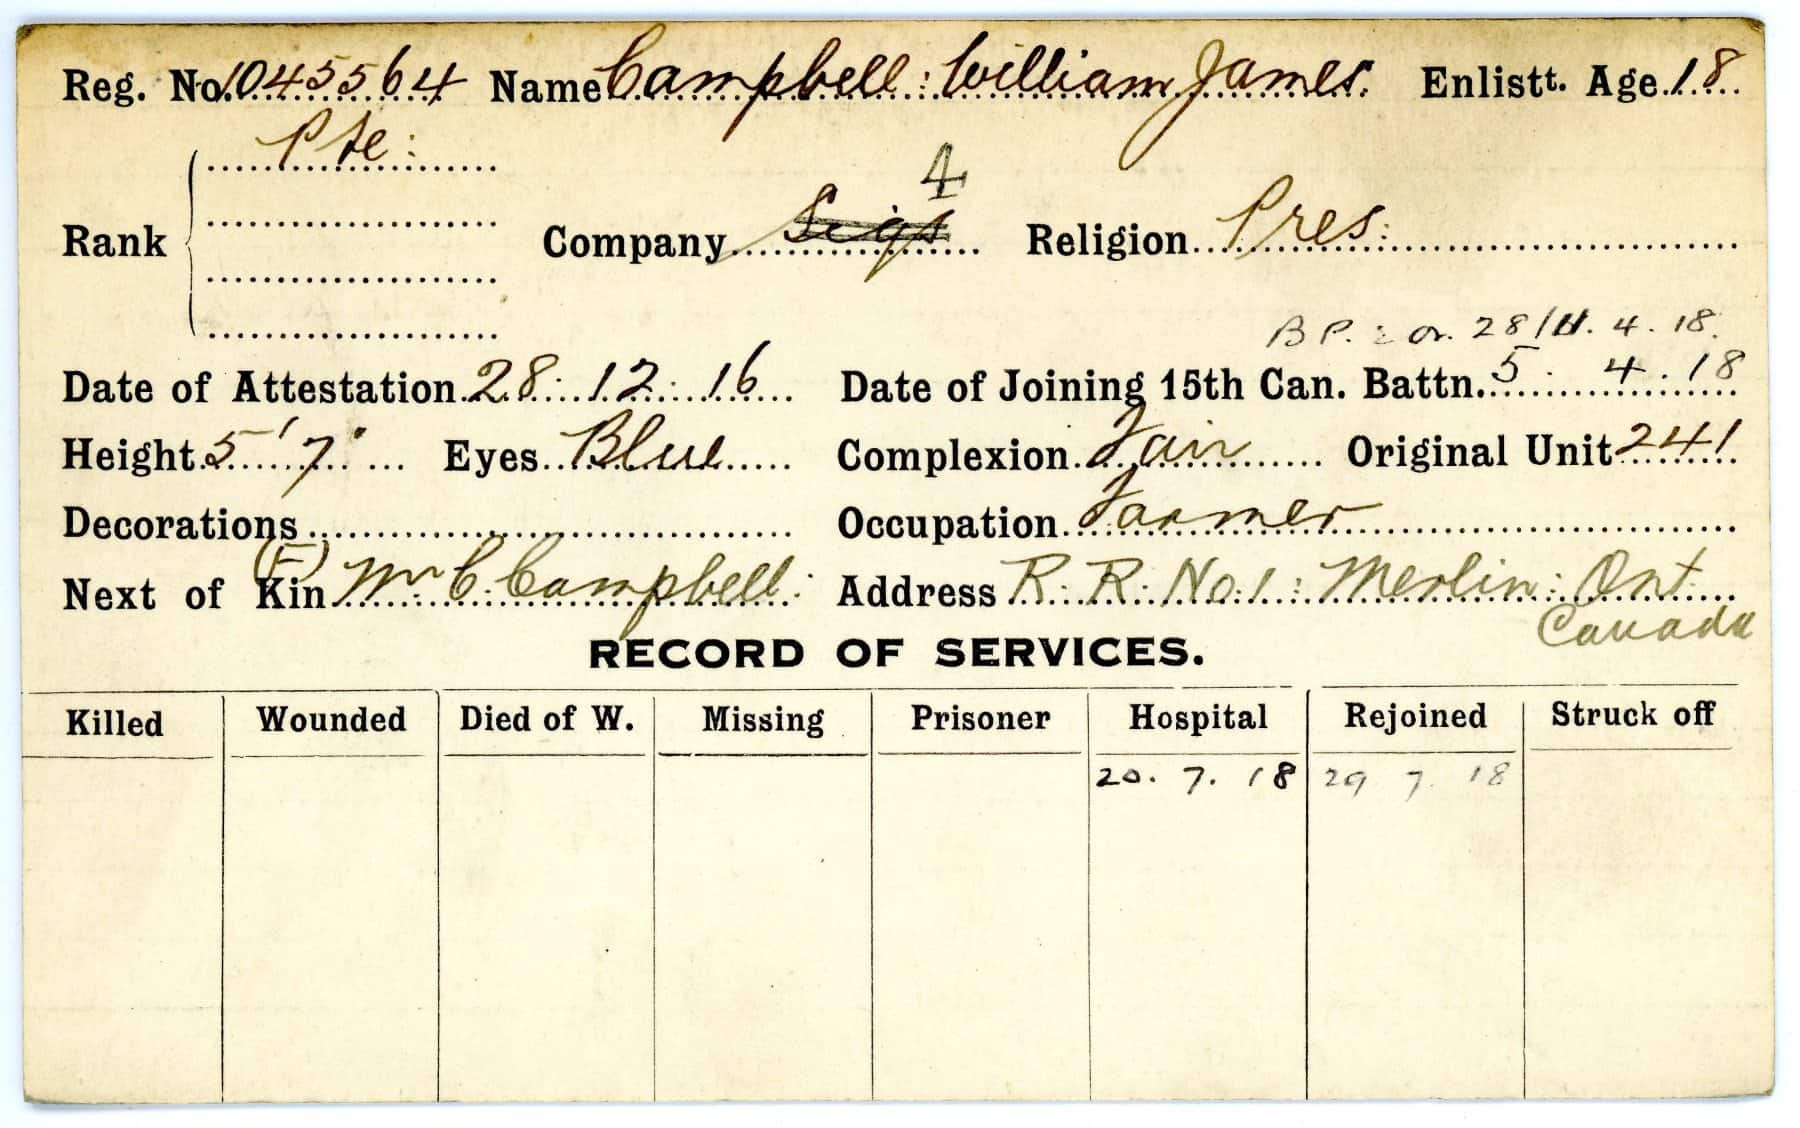 Reg. No. 1045564 Name Campbell: William James. Enlistt. Age 18
Pte:
4
Rank Company Sigs Religion Pres:
B P. : Or. 28/11. 4. 18.
Date of Attestation 28. 12. 16 Date of Joining 15th Can. Battn. 5. 4. 18
Height 5' 7" Eyes Blue Complexion Fair Original Unit 241
Decorations Occupation Farmer
(F)
Next of Kin Mr C. Campbell: Address R. R. No. 1: Merlin: Ont.
Canada
RECORD OF SERVICES.
Killed Wounded Died of W. Missing Prisoner Hospital Rejoined Struck off
20. 7. 18 29 7. 18